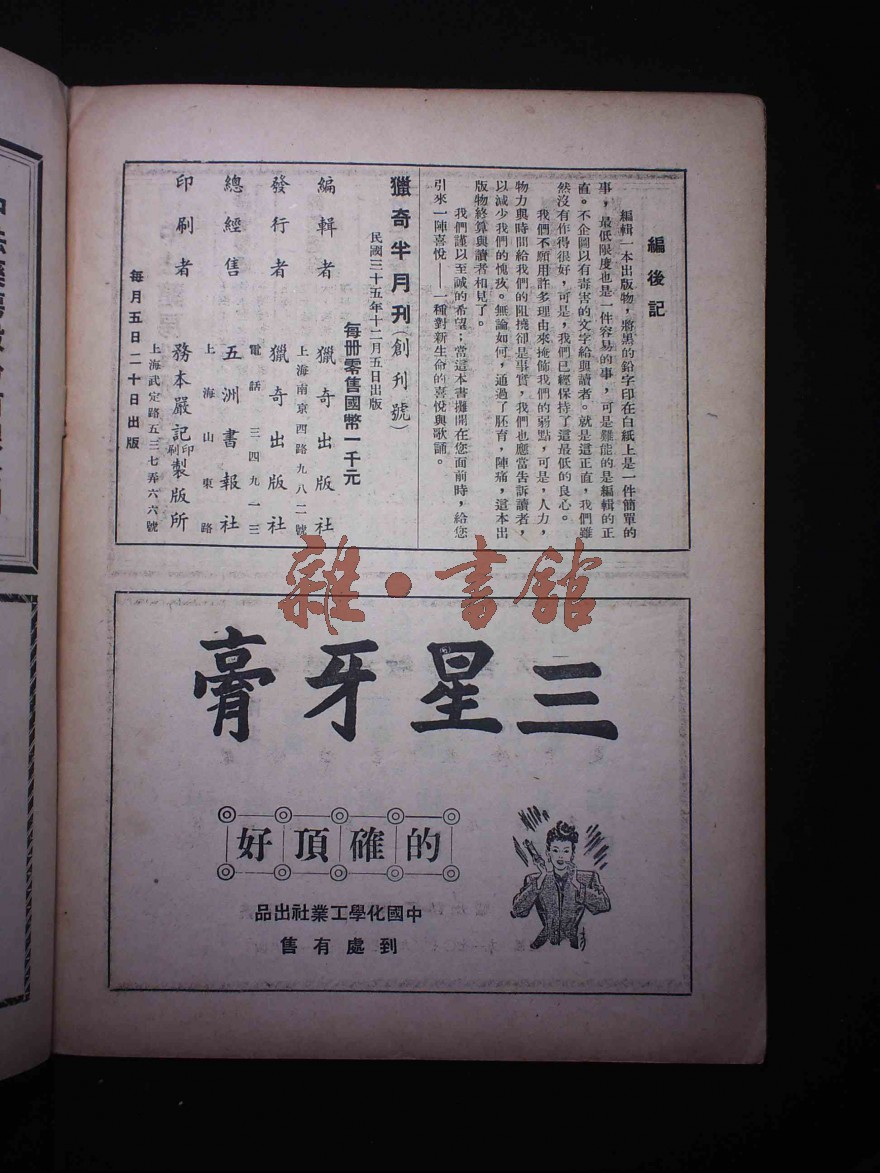 編後記
編輯一本出版物，將黑的鉛字印在白紙上是一件簡單的
事，最低限度也是一件容易的事，可是難能的是編輯的正
直。不企圖以有毒害的文字給與讀者。就是這正直，我們雖
然沒有作得很好，可是，我們已經保持了這最低的良心。
我們不願用許多理由來掩飾我們的弱點，可是，人力，
物力與時間給我們的阻撓卻是事實，我們也應當告訴讀者，
以減少我們的愧疚。無論如何，通過了胚育，陣痛，這本出
版物終算與讀者相見了。
我們謹以至誠的希望；當這本書攤開在您面前時，給您
引來一陣喜悅——一種對新生命的喜悅與歌誦。
獵奇半月刊（創刊號）
民國三十五年十二月五日出版
每册零售國幣一千元
編輯者 獵奇出版社
上海南京西路九八二號
發行者 獵奇出版社
電話 三一四九一三
總經售 五洲書報社
上海山東路
印刷者 務本嚴記印刷製版所
上海武定路五三七弄六六號
每月五日二十日出版
雜·書館
三星牙膏
的確頂好
中國化學工業社出品
到處有售